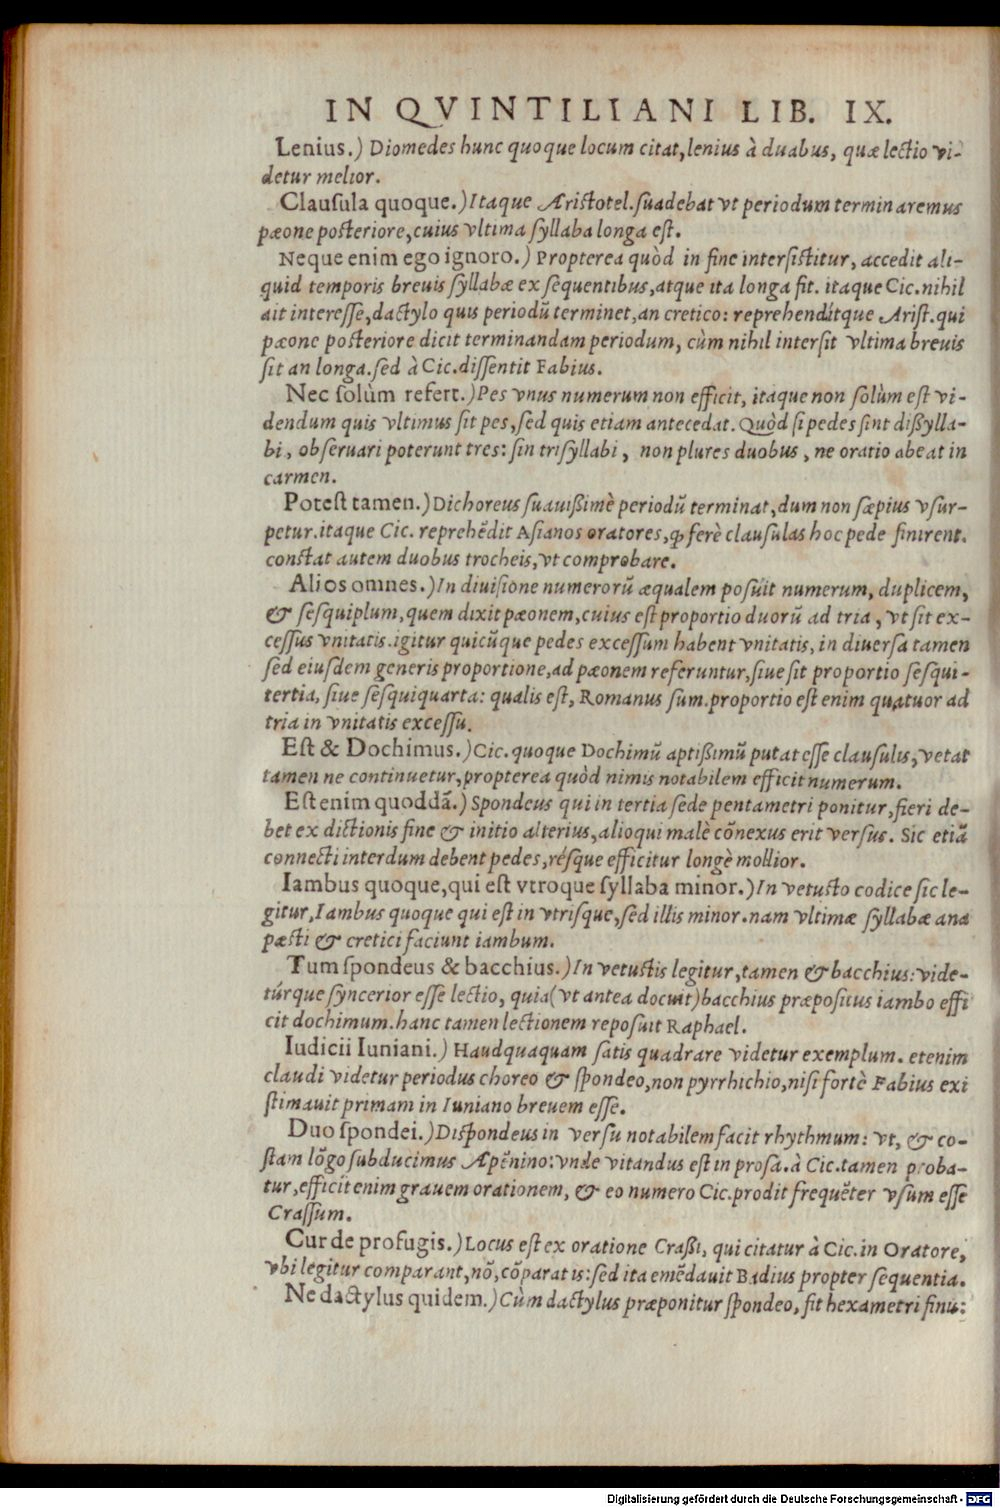 IN QVINTILIANI LIB. IX.
Lenius.) Diomedes hunc quoque locum citat, lenius à duabus, quæ lectio vi-
detur melior.
Clausula quoque.) Itaque Aristotel. suadebat vt periodum terminaremus
pæone posteriore, cuius vltima syllaba longa est.
Neque enim ego ignoro.) Propterea quòd in fine intersistitur, accedit ali-
quid temporis breuis syllabæ ex sequentibus, atque ita longa fit. itaque Cic. nihil
ait interesse, dactylo quis periodũ terminet, an cretico: reprehendítque Arist. qui
pæone posteriore dicit terminandam periodum, cùm nihil intersit vltima breuis
sit an longa. sed à Cic. dissentit Fabius.
Nec solùm refert.) Pes vnus numerum non efficit, itaque non solùm est vi-
dendum quis vltimus sit pes, sed quis etiam antecedat. Quòd si pedes sint dißylla-
bi, obseruari poterunt tres: sin trisyllabi, non plures duobus, ne oratio abeat in
carmen.
Potest tamen.) Dichoreus suauißimè periodũ terminat, dum non sæpius vsur-
petur. itaque Cic. reprehẽdit Asianos oratores, ꝙ ferè clausulas hoc pede finirent.
constat autem duobus trocheis, vt comprobare.
Alios omnes.) In diuisione numerorũ æqualem posuit numerum, duplicem,
& sesquiplum, quem dixit pæonem, cuius est proportio duorũ ad tria, vt sit ex-
cessus vnitatis. igitur quicũque pedes excessum habent vnitatis, in diuersa tamen
sed eiusdem generis proportione, ad pæonem referuntur, siue sit proportio sesqui-
tertia, siue sesquiquarta: qualis est, Romanus sum. proportio est enim quatuor ad
tria in vnitatis excessu.
Est & Dochimus.) Cic. quoque Dochimũ aptißimũ putat esse clausulis, vetat
tamen ne continuetur, propterea quòd nimis notabilem efficit numerum.
Est enim quoddã.) Spondeus qui in tertia sede pentametri ponitur, fieri de-
bet ex dictionis fine & initio alterius, alioqui malè cõnexus erit versus. Sic etiã
connecti interdum debent pedes, résque efficitur longè mollior.
Iambus quoque, qui est vtroque syllaba minor.) In vetusto codice sic le-
gitur, Iambus quoque qui est in vtrisque, sed illis minor. nam vltimæ syllabæ ana
pæsti & cretici faciunt iambum.
Tum spondeus & bacchius.) In vetustis legitur, tamen & bacchius: vide-
túrque syncerior esse lectio, quia (vt antea docuit) bacchius præpositus iambo effi
cit dochimum. hanc tamen lectionem reposuit Raphael.
Iudicii Iuniani.) Haudquaquam satis quadrare videtur exemplum. etenim
claudi videtur periodus choreo & spondeo, non pyrrhichio, nisi fortè Fabius exi
stimauit primam in Iuniano breuem esse.
Duo spondei.) Dispondeus in versu notabilem facit rhythmum: vt, & co-
stam lõgo subducimus Apẽnino: vnde vitandus est in prosa. à Cic. tamen proba-
tur, efficit enim grauem orationem, & eo numero Cic. prodit frequẽter vsum esse
Crassum.
Cur de profugis.) Locus est ex oratione Craßi, qui citatur à Cic. in Oratore,
vbi legitur comparant, nõ, cõparatis: sed ita emẽdauit Badius propter sequentia.
Ne dactylus quidem.) Cùm dactylus præponitur spondeo, fit hexametri finis:
Digitalisierung gefördert durch die Deutsche Forschungsgemeinschaft - DFG